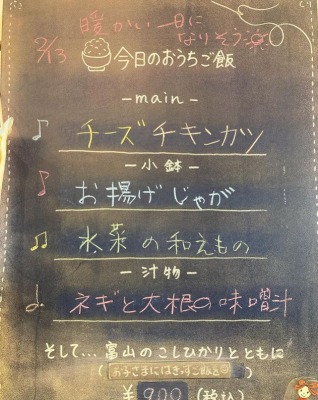 2/13 暖かい一日に
なりそう
今日のおうちご飯
-main-
チーズチキンカツ
-小鉢-
お揚げじゃが
水菜の和えもの
-汁物-
ネギと大根の味噌汁
そして...富山のこしひかりとともに
(お子さまには
¥900(税込)